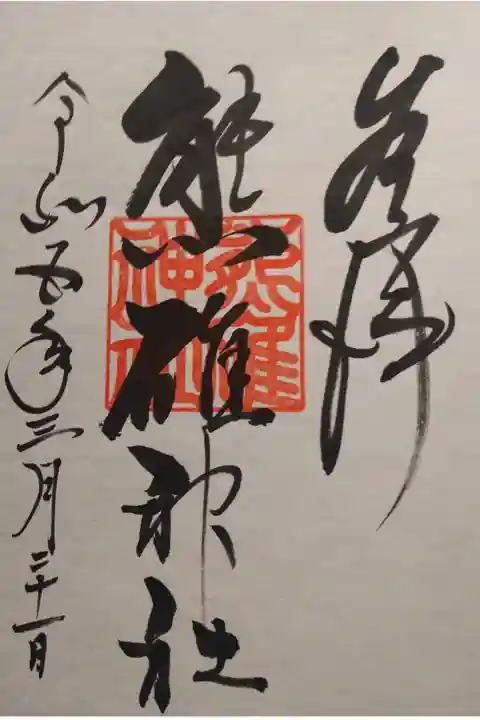 奉拝
熊碓神社
令和五年三月二十一日
熊碓神社